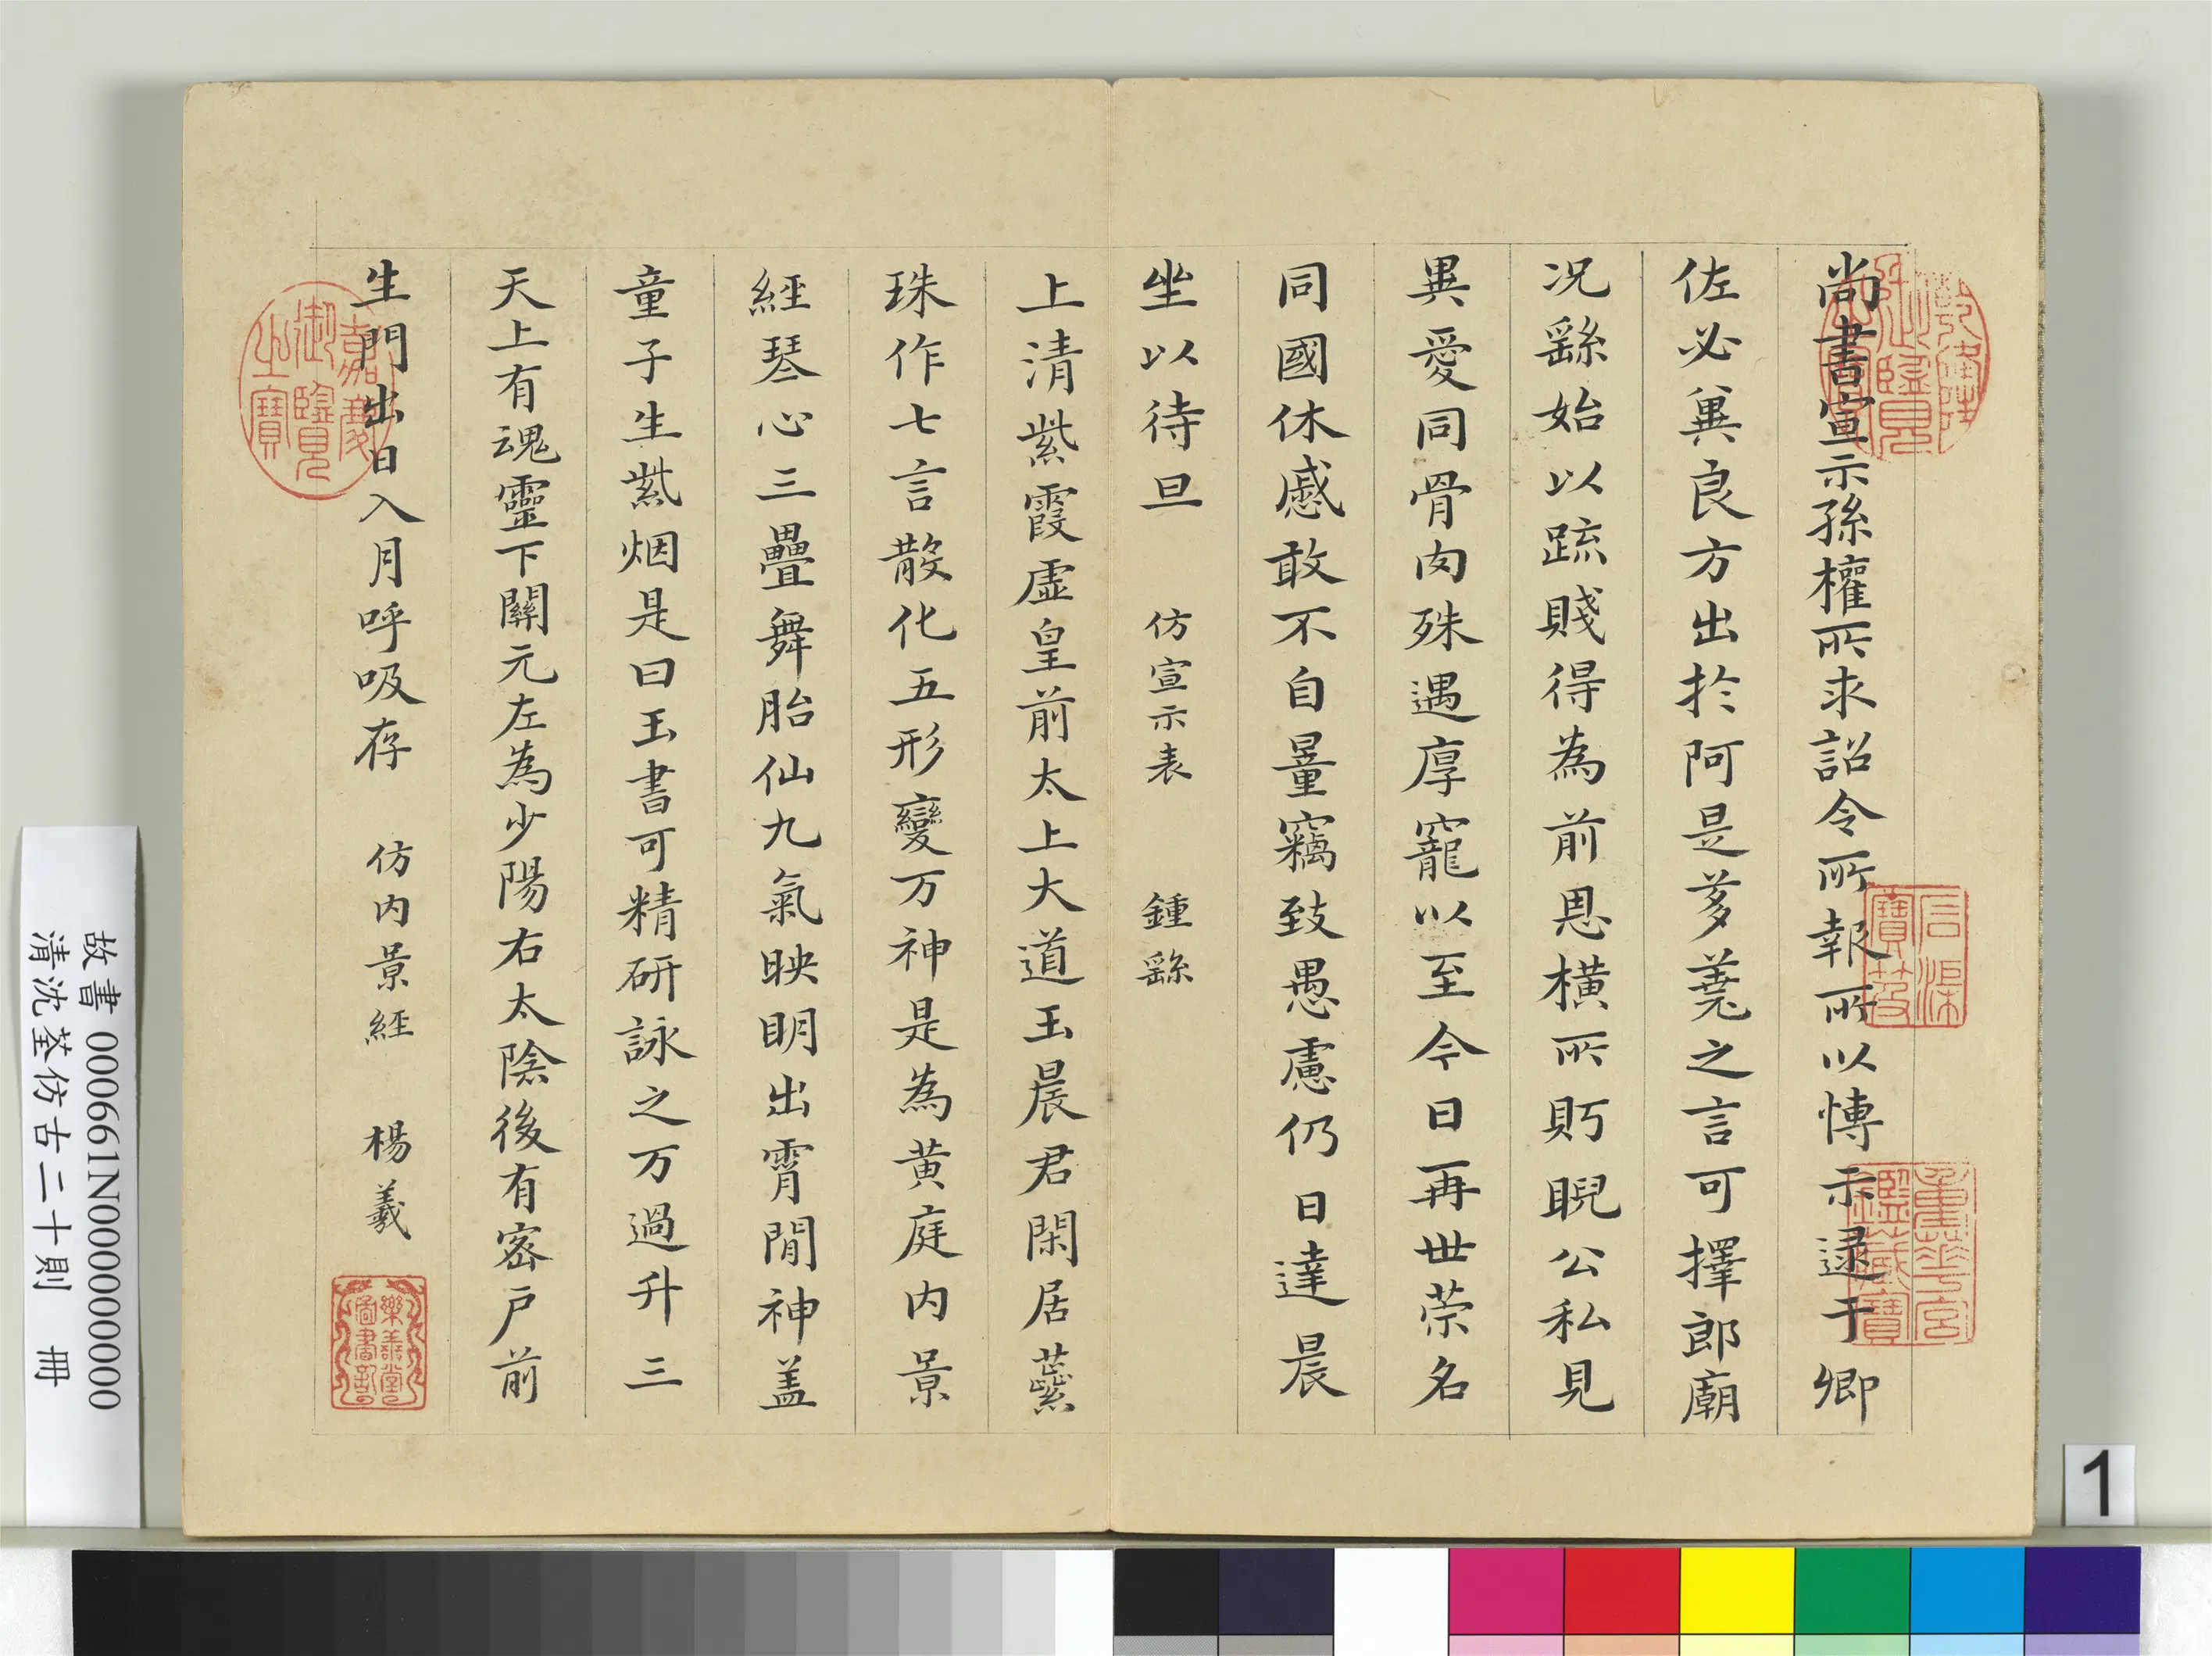 尚書宣示孫權所求詔令所報所以博示逮于卿
佐必冀良方出於阿是芻蕘之言可擇郎廟
况繇始以疏賤得為前恩橫所貯睨公私見
異愛同骨肉殊遇厚寵以至今日再世荣名
同國休慼敢不自量竊致愚慮仍日達晨
坐以待旦 仿宣示表 鍾繇
上清紫霞虛皇前太上大道玉晨君閑居蘂
珠作七言散化五形變万神是為黄庭内景
經琴心三疊舞胎仙九氣映明出霄間神盖
童子生紫烟是曰玉書可精研詠之万過升三
天上有魂靈下關元左為少陽右太陰後有密戶前
生門出日入月呼吸存 仿内景經 楊羲
乾隆御覽之寶
石渠寶笈
重華宮鑑藏寶
嘉慶御覽之寶
樂善堂圖書記
故書 000661N000000000
清沈荃仿古二十則 冊
1